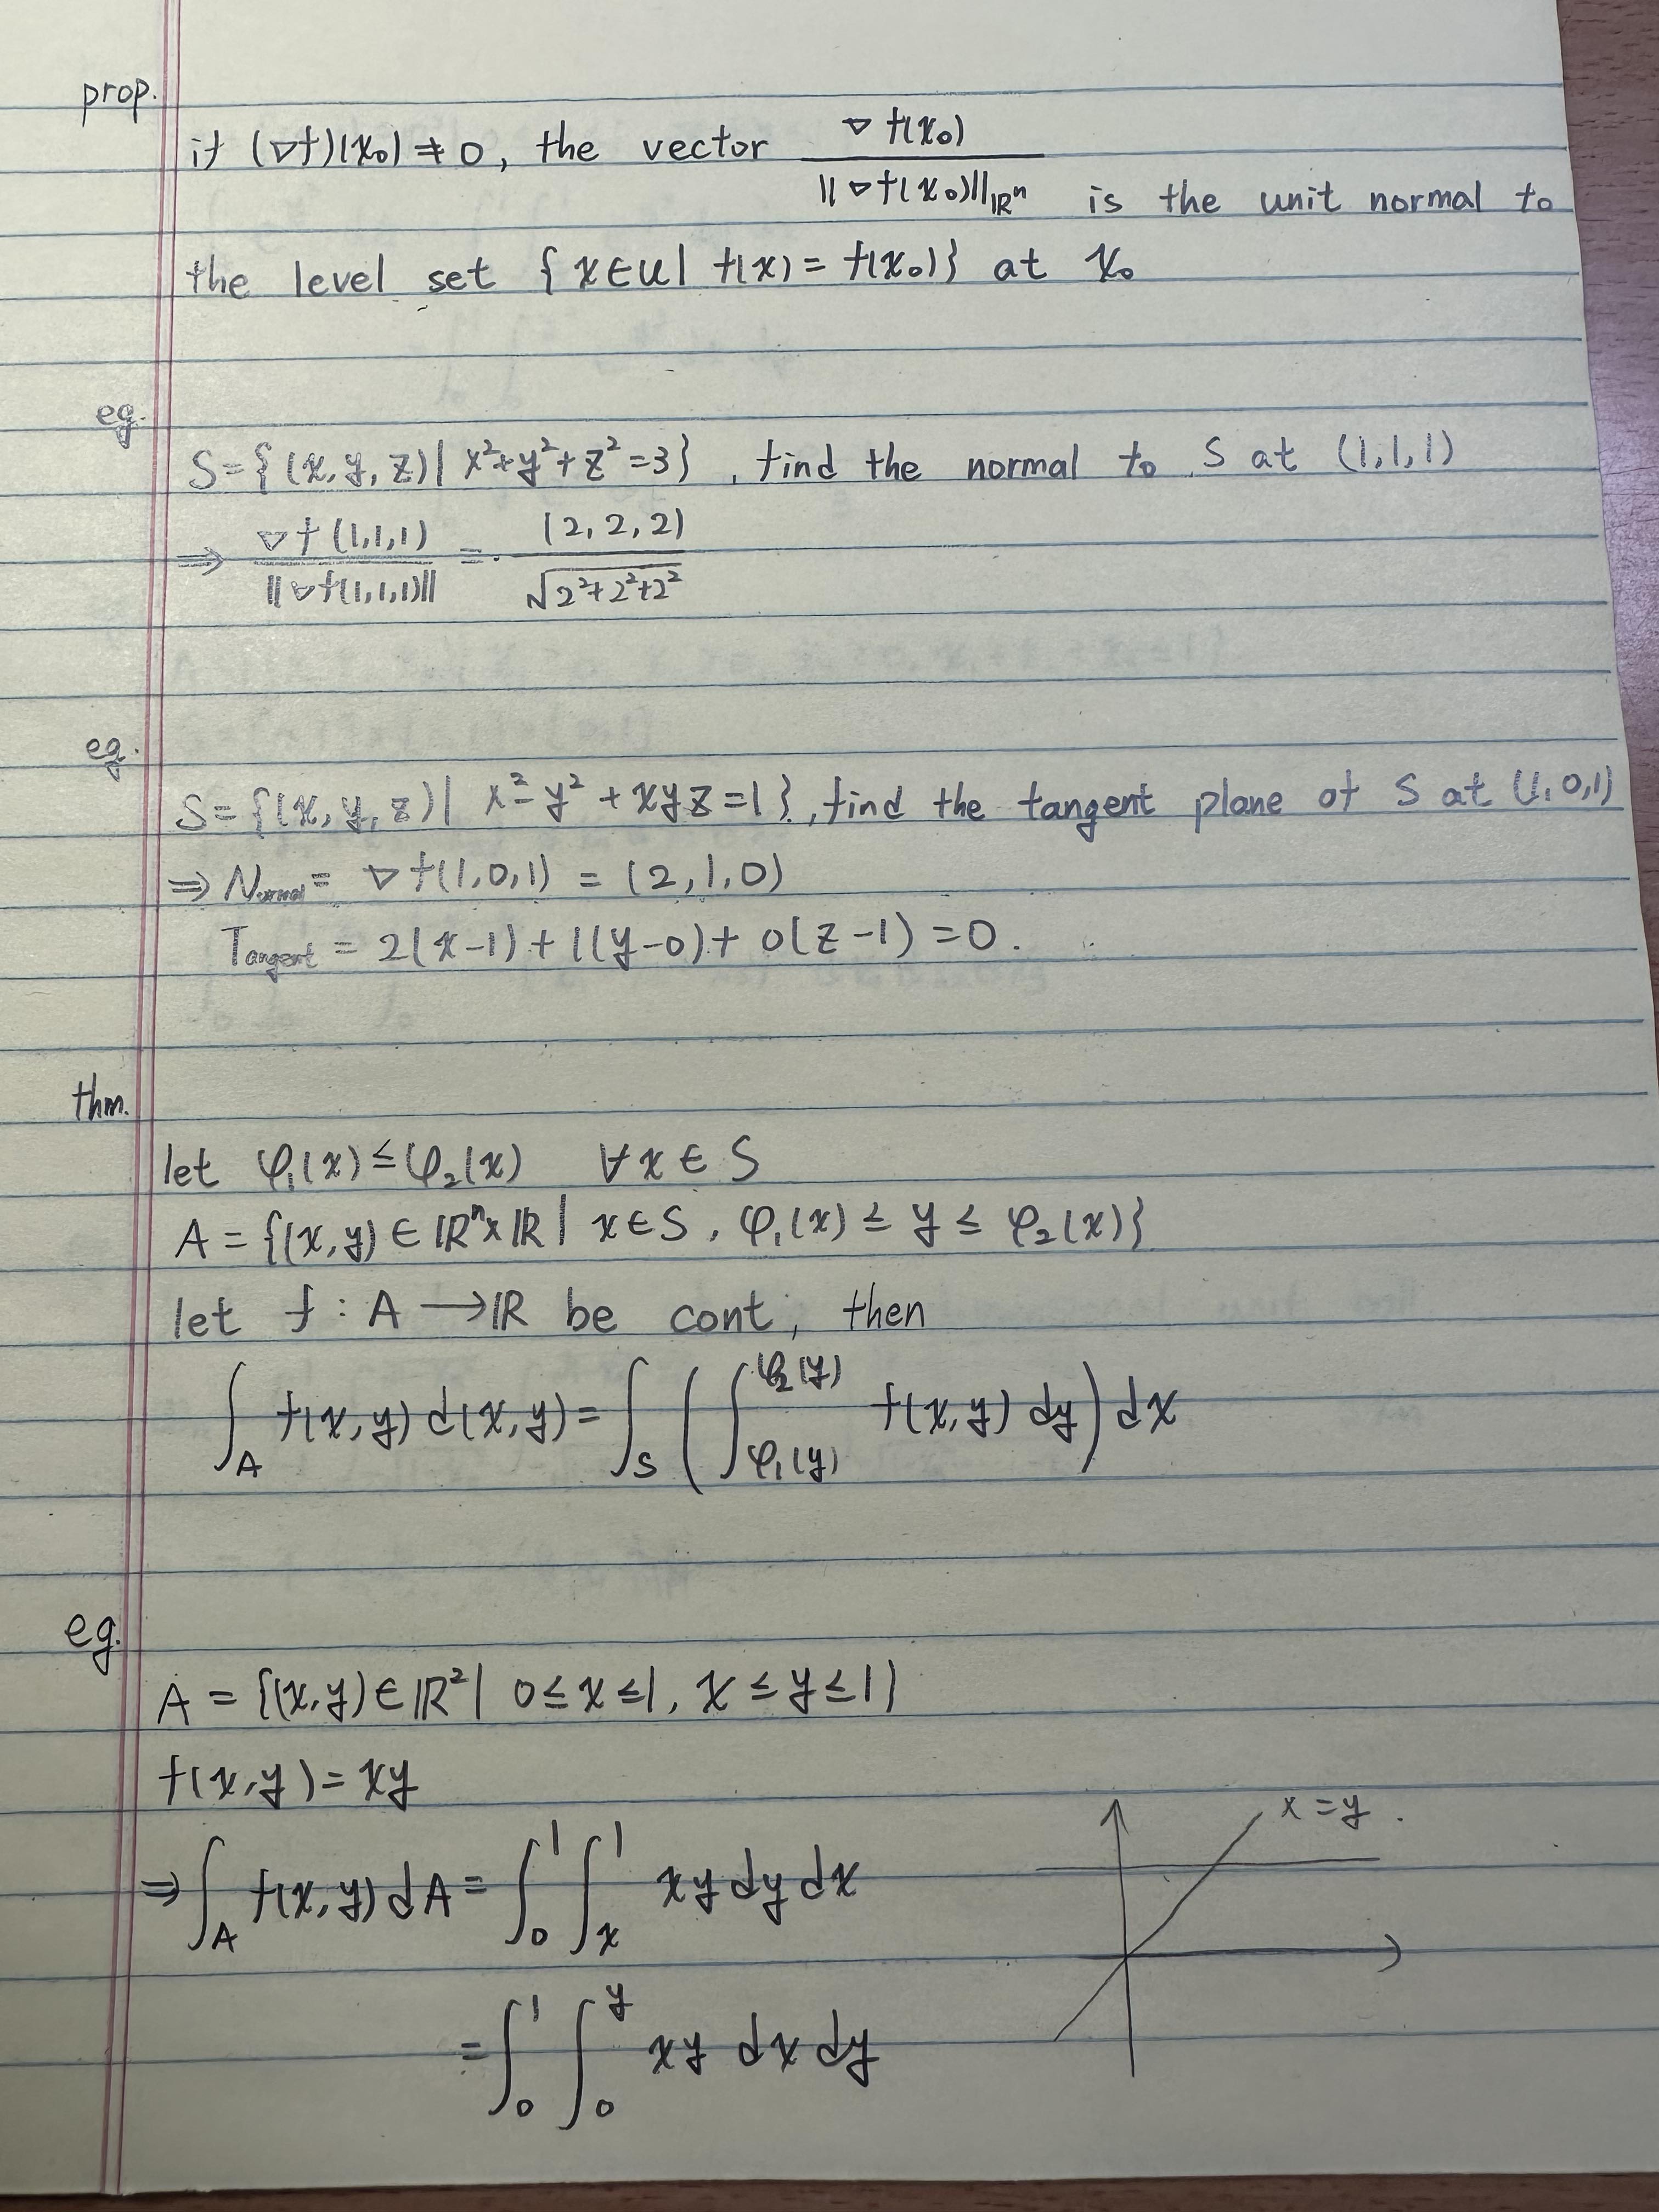 prop.
if (∇f)(x₀) ≠ 0, the vector ∇f(x₀) / ||∇f(x₀)||_ℝⁿ is the unit normal to
the level set {x∈U | f(x) = f(x₀)} at x₀
eg.
S={(x,y,z)| x²+y²+z²=3}, find the normal to S at (1,1,1)
⇒ ∇f(1,1,1) / ||∇f(1,1,1)|| = (2,2,2) / √(2²+2²+2²)
eg.
S={(x,y,z)| x²-y²+xyz=1}, find the tangent plane of S at (1,0,1)
⇒ Normal = ∇f(1,0,1) = (2,1,0)
Tangent = 2(x-1)+1(y-0)+0(z-1)=0.
thm.
let φ₁(x)≤φ₂(x) ∀x∈S
A={(x,y)∈ℝⁿ×ℝ| x∈S, φ₁(x)≤y≤φ₂(x)}
let f:A→ℝ be cont, then
∫_A f(x,y)d(x,y)=∫_S(∫_{φ₁(y)}^{φ₂(y)} f(x,y)dy)dx
eg.
A={(x,y)∈ℝ²| 0≤x≤1, x≤y≤1}
f(x,y)=xy
x=y.
⇒∫_A f(x,y)dA=∫_0^1∫_x^1 xydydx
=∫_0^1∫_0^y xy dxdy